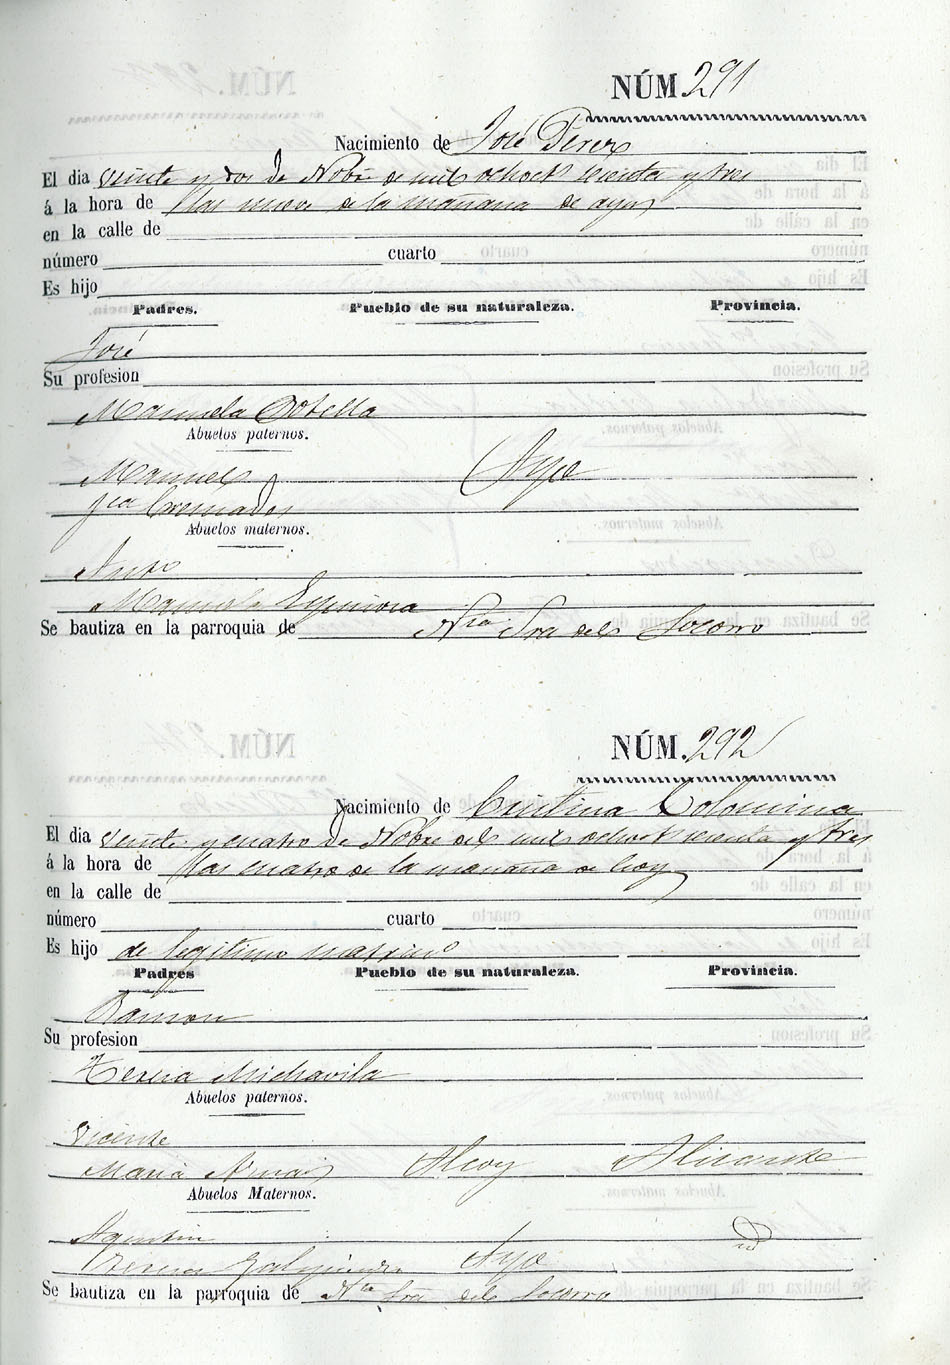 NÚM. 291
Nacimiento de José Perez
El dia veinte y dos de Nobe. de mil ochocts. setenta y tres
á la hora de las nueve de la mañana de ayer
en la calle de
número cuarto
Es hijo
Padres. Pueblo de su naturaleza. Provincia.
José
Su profesion
Manuela Botella
Abuelos paternos.
Manuel
Fca Cremades Aspe
Abuelos maternos.
Anto
Manuela Espinosa
Se bautiza en la parroquia de Ntra Sra del Socorro
NÚM. 292
Nacimiento de Cristina Colomina
El dia veinte y cuatro de Nobre del mil ochocts setenta y tres
á la hora de las cuatro de la mañana de hoy
en la calle de
número cuarto
Es hijo de legitimo matrimo
Padres Pueblo de su naturaleza. Provincia.
Ramon
Su profesion
Teresa Michavila
Abuelos paternos.
Vicente
Maria Arnaiz Alcoy Alicante
Abuelos Maternos.
Agustin
Teresa Aspe id
Se bautiza en la parroquia de Nta Sra del Socorro